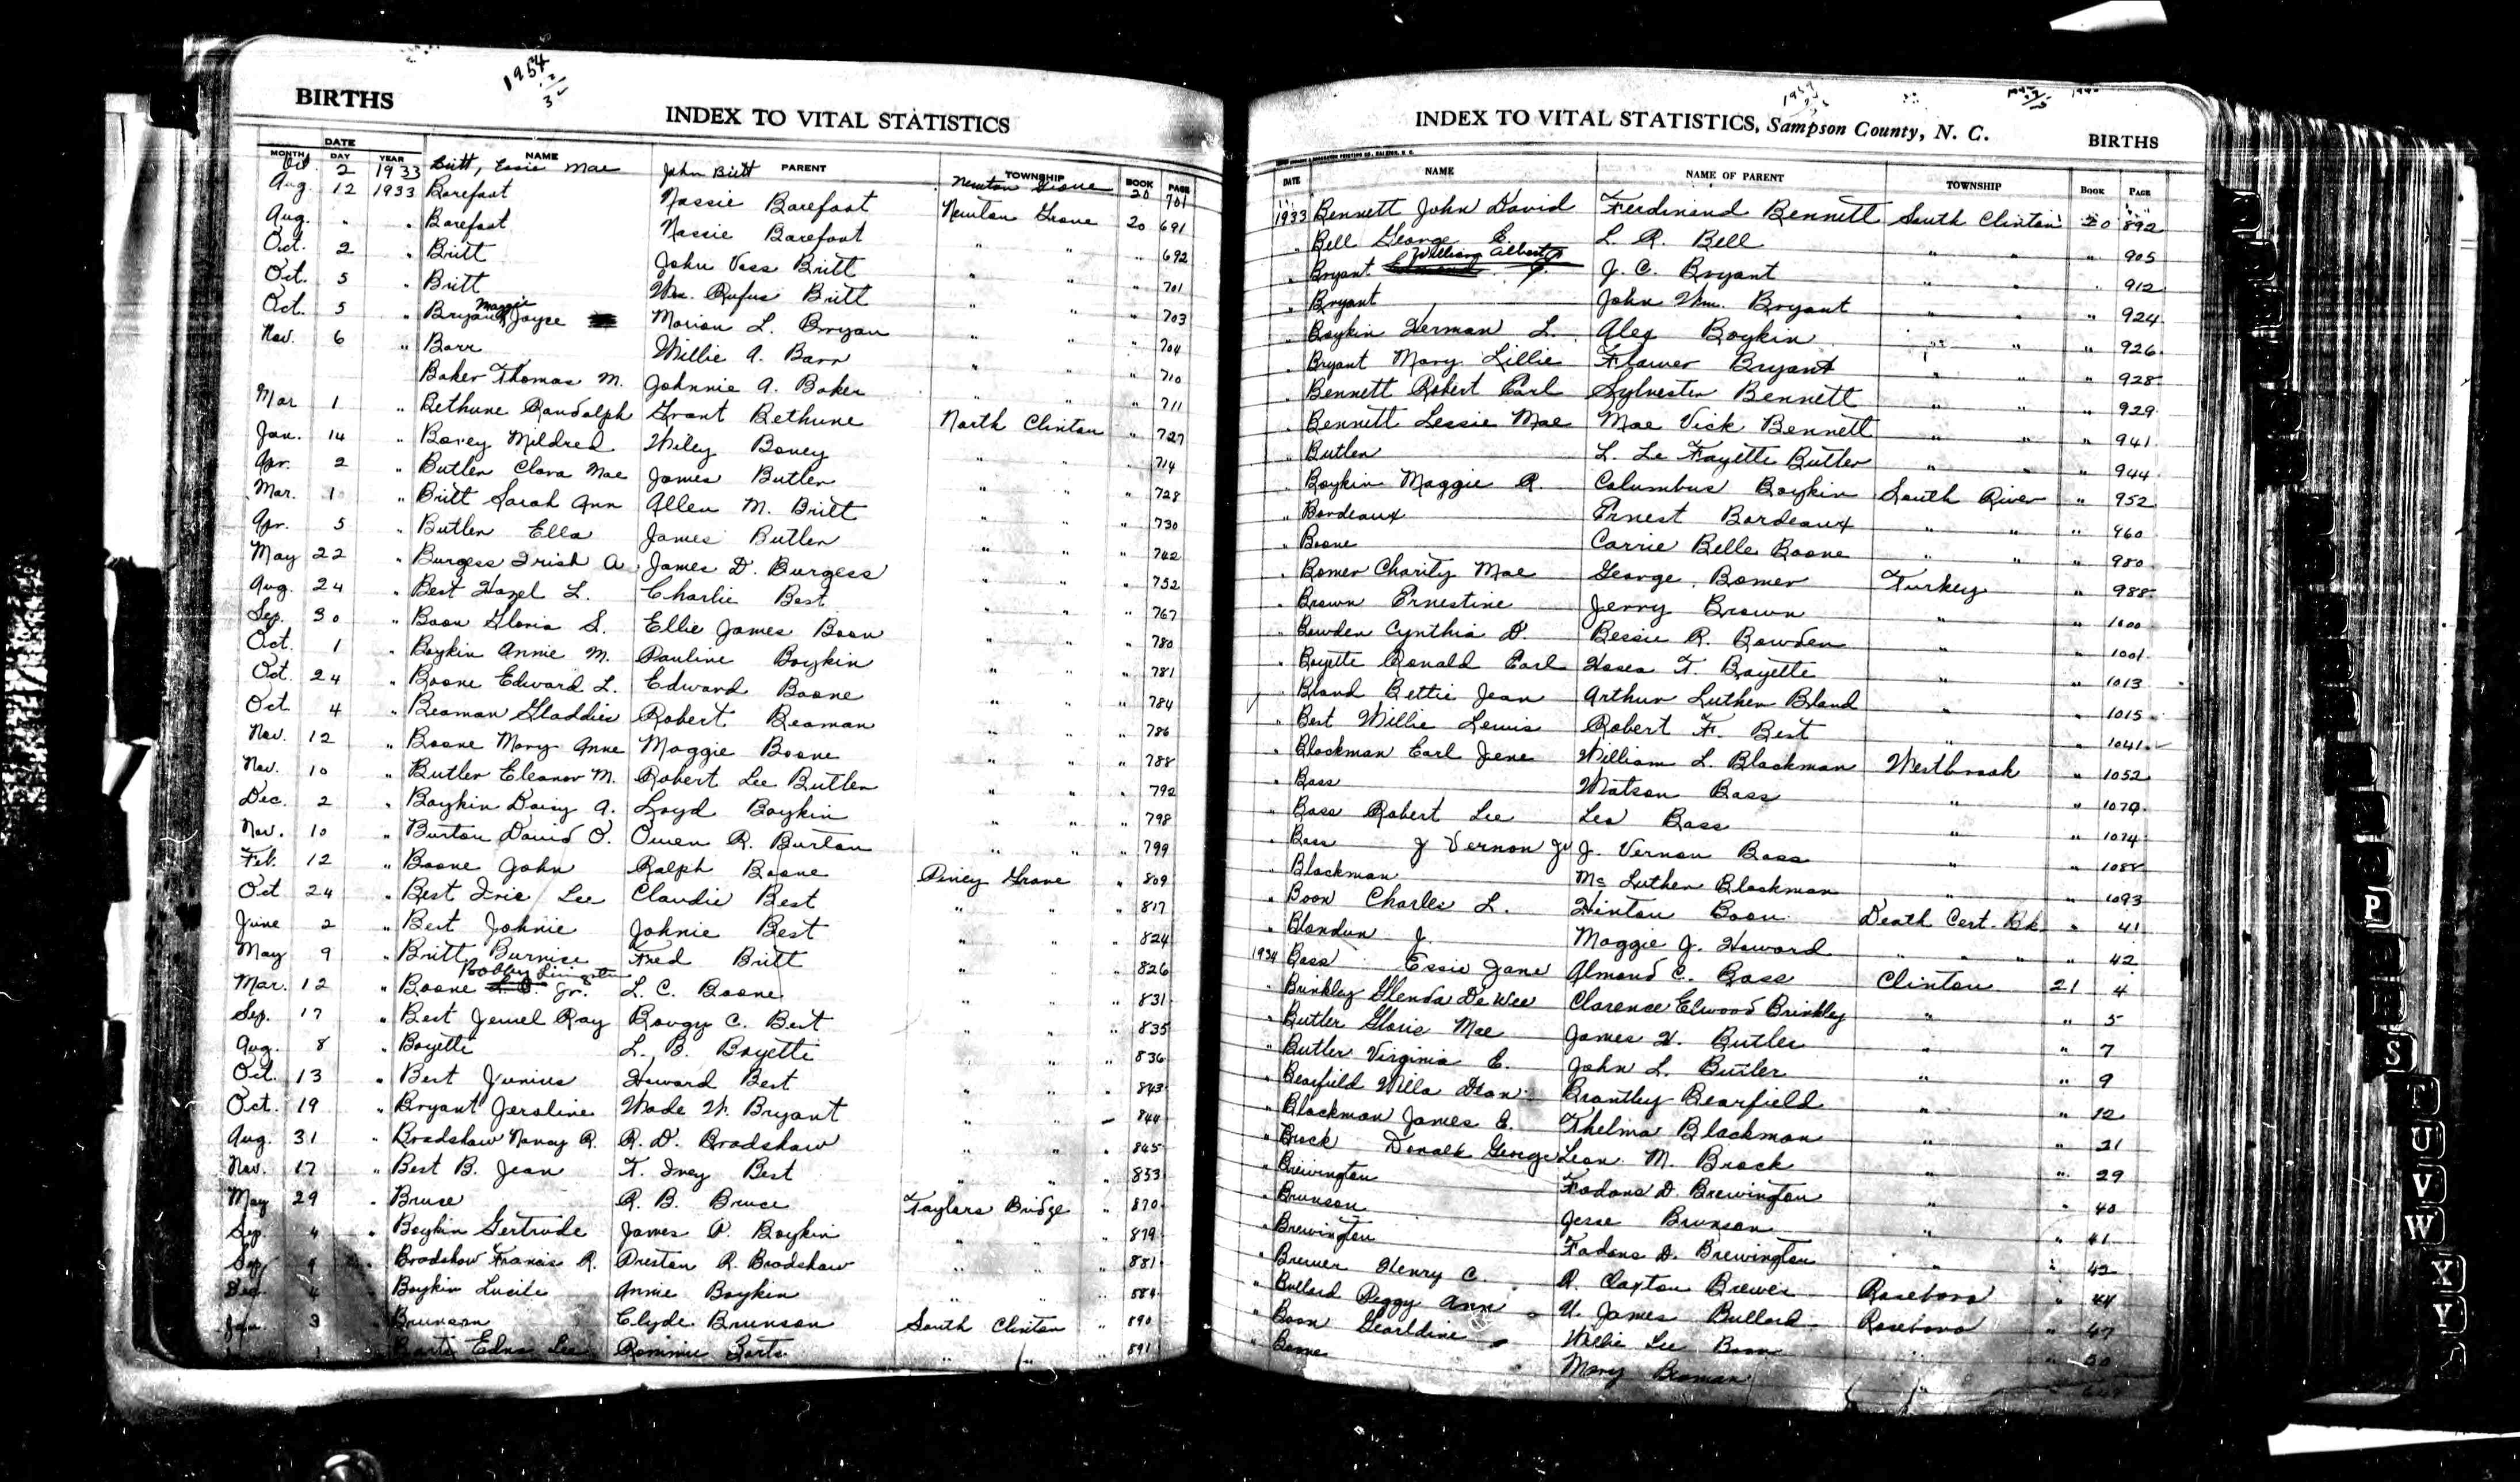 1954
BIRTHS
INDEX TO VITAL STATISTICS
DATE
MONTH DAY YEAR NAME PARENT TOWNSHIP BOOK PAGE
Oct. 2 1933 Britt, Essie Mae John Britt Newton Grove 20 701
Aug. 12 1933 Barefoot Nassie Barefoot Newton Grove 20 691
Aug. " " Barefoot Nassie Barefoot " " " 692
Oct. 2 " Britt John Voss Britt " " " 701
Oct. 5 " Britt Wm. Rufus Britt " " " 703
Oct. 5 " Bryan Maggie Joyce Marion L. Bryan " " " 704
Nov. 6 " Barr Willie A. Barr " " " 710
Baker Thomas M. Johnnie A. Baker " " " 711
Mar 1 " Bethune Randolph Grant Bethune North Clinton " 727
Jan. 14 " Boney Mildred Wiley Boney " " " 714
Apr. 2 " Butler Clara Mae James Butler " " " 728
Mar. 1 " Britt Sarah Ann Allen M. Britt " " " 730
Apr. 5 " Butler Ella James Butler " " " 742
May 22 " Burgess Irish A. James D. Burgess " " " 752
Aug. 24 " Best Hazel L. Charlie Best " " " 767
Sep. 30 " Boon Gloria S. Ellie James Boon " " " 780
Oct. 1 " Boykin Annie M. Pauline Boykin " " " 781
Oct. 24 " Boone Edward L. Edward Boone " " " 784
Oct. 4 " Beaman Gladdies Robert Beaman " " " 786
Nov. 12 " Boone Mary Anne Maggie Boone " " " 788
Nov. 10 " Butler Eleanor M. Robert Lee Butler " " " 792
Dec. 2 " Boykin Daisy A. Loyd Boykin " " " 798
Nov. 10 " Burton David O. Owen R. Burton " " " 799
Feb. 12 " Boone John Ralph Boone Piney Grove " 809
Oct 24 " Best Iris Lee Claudie Best " " " 817
June 2 " Best Johnie Johnie Best " " " 824
May 9 " Britt Burnice Fred Britt " " " 826
Mar. 12 " Boone Bobby Livingston Jr. L. C. Boone " " " 831
Sep. 17 " Best Jewel Ray Rougy C. Best " " " 835
Aug. 8 " Boyette L. B. Boyette " " " 836
Oct. 13 " Best Junius Howard Best " " " 843
Oct. 19 " Bryant Jeraline Wade W. Bryant " " " 844
Aug. 31 " Bradshaw Nancy R. R. D. Bradshaw " " " 845
Nov. 17 " Best B. Jean T. Ivey Best " " " 853
May 29 " Bruce R. B. Bruce Taylors Bridge " 870
Sep. 4 " Boykin Gertrude James A. Boykin " " " 879
Sep. 9 " Bradshaw Francis R. Preston R. Bradshaw " " " 881
Dec. 4 " Boykin Lucile Annie Boykin " " " 884
Jan. 3 Brunson Clyde Brunson South Clinton " 890
Edna Lee " " " 891
INDEX TO VITAL STATISTICS, Sampson County, N. C. BIRTHS
DATE NAME NAME OF PARENT TOWNSHIP BOOK PAGE
1933 Bennett John David Ferdinand Bennett South Clinton 20 892
" Bell George E. L. R. Bell " " " 905
" Bryant William Albert J. C. Bryant " " " 912
" Bryant John Wm. Bryant " " " 924
" Boykin Herman L. Alex Boykin " " " 926
" Bryant Mary Lillie Flower Bryant " " " 928
" Bennett Robert Earl Sylvester Bennett " " " 929
" Bennett Lessie Mae Mae Vick Bennett " " " 941
" Butler L. La Fayette Butler " " " 944
" Boykin Maggie R. Columbus Boykin South River " 952
" Bordeaux Ernest Bordeaux " " " 960
" Boone Carrie Belle Boone " " " 980
" Bomer Charity Mae George Bomer Turkey " 988
" Brown Ernestine Jerry Brown " " 1000
" Bowden Cynthia D. Bessie R. Bowden " " 1001
" Boyette Donald Earl Hosea T. Boyette " " 1013
" Bland Bettie Jean Arthur Luther Bland " " 1015
" Best Willie Lewis Robert F. Best " " 1041
" Blackman Earl Jene William L. Blackman Westbrook " 1052
" Bass Watson Bass " " 1070
" Bass Robert Lee Leo Bass " " 1074
" Bass J Vernon Jr J. Vernon Bass " " 1088
" Blackman Mc Luther Blackman " " 1093
" Boon Charles L. Hinton Boon Death Cert. Bk. " 41
" Blandun J. Maggie J. Howard " " " " 42
1934 Bass Essie Jane Almond C. Bass Clinton 21 4
" Brinkley Glenda DeWee Clarence Elwood Brinkley " " 5
" Butler Gloria Mae James H. Butler " " 7
" Butler Virginia E. John L. Butler " " 9
" Bearfield Willa Dean Brantley Bearfield " " 12
" Blackman James E. Thelma Blackman " " 21
" Brock Donald George Leon M. Brock " " 29
" Brewington Fadona D. Brewington " " 40
" Brunson Jesse Brunson " " 41
" Brewington Fadona D. Brewington " " 42
" Brewer Henry C. R. Claxton Brewer Roseboro " 44
" Bullard Peggy Ann U. James Bullard Roseboro " 47
" Boon Gearldine Willie Lee Boon " " 50
" Mary Beaman
P
S
T
U
V
W
X
Y